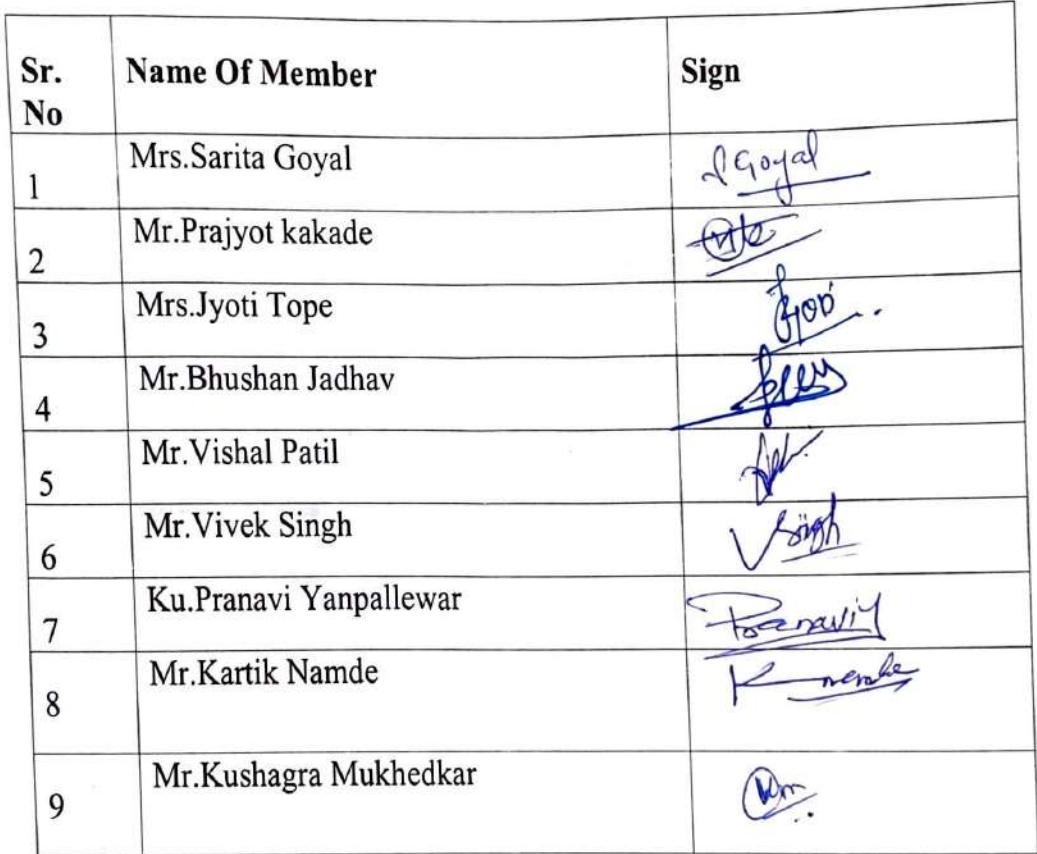 Sr. No Name Of Member Sign
1 Mrs.Sarita Goyal S Goyal
2 Mr.Prajyot kakade
3 Mrs.Jyoti Tope
4 Mr.Bhushan Jadhav
5 Mr.Vishal Patil
6 Mr.Vivek Singh V Singh
7 Ku.Pranavi Yanpallewar PranaviY
8 Mr.Kartik Namde
9 Mr.Kushagra Mukhedkar Km